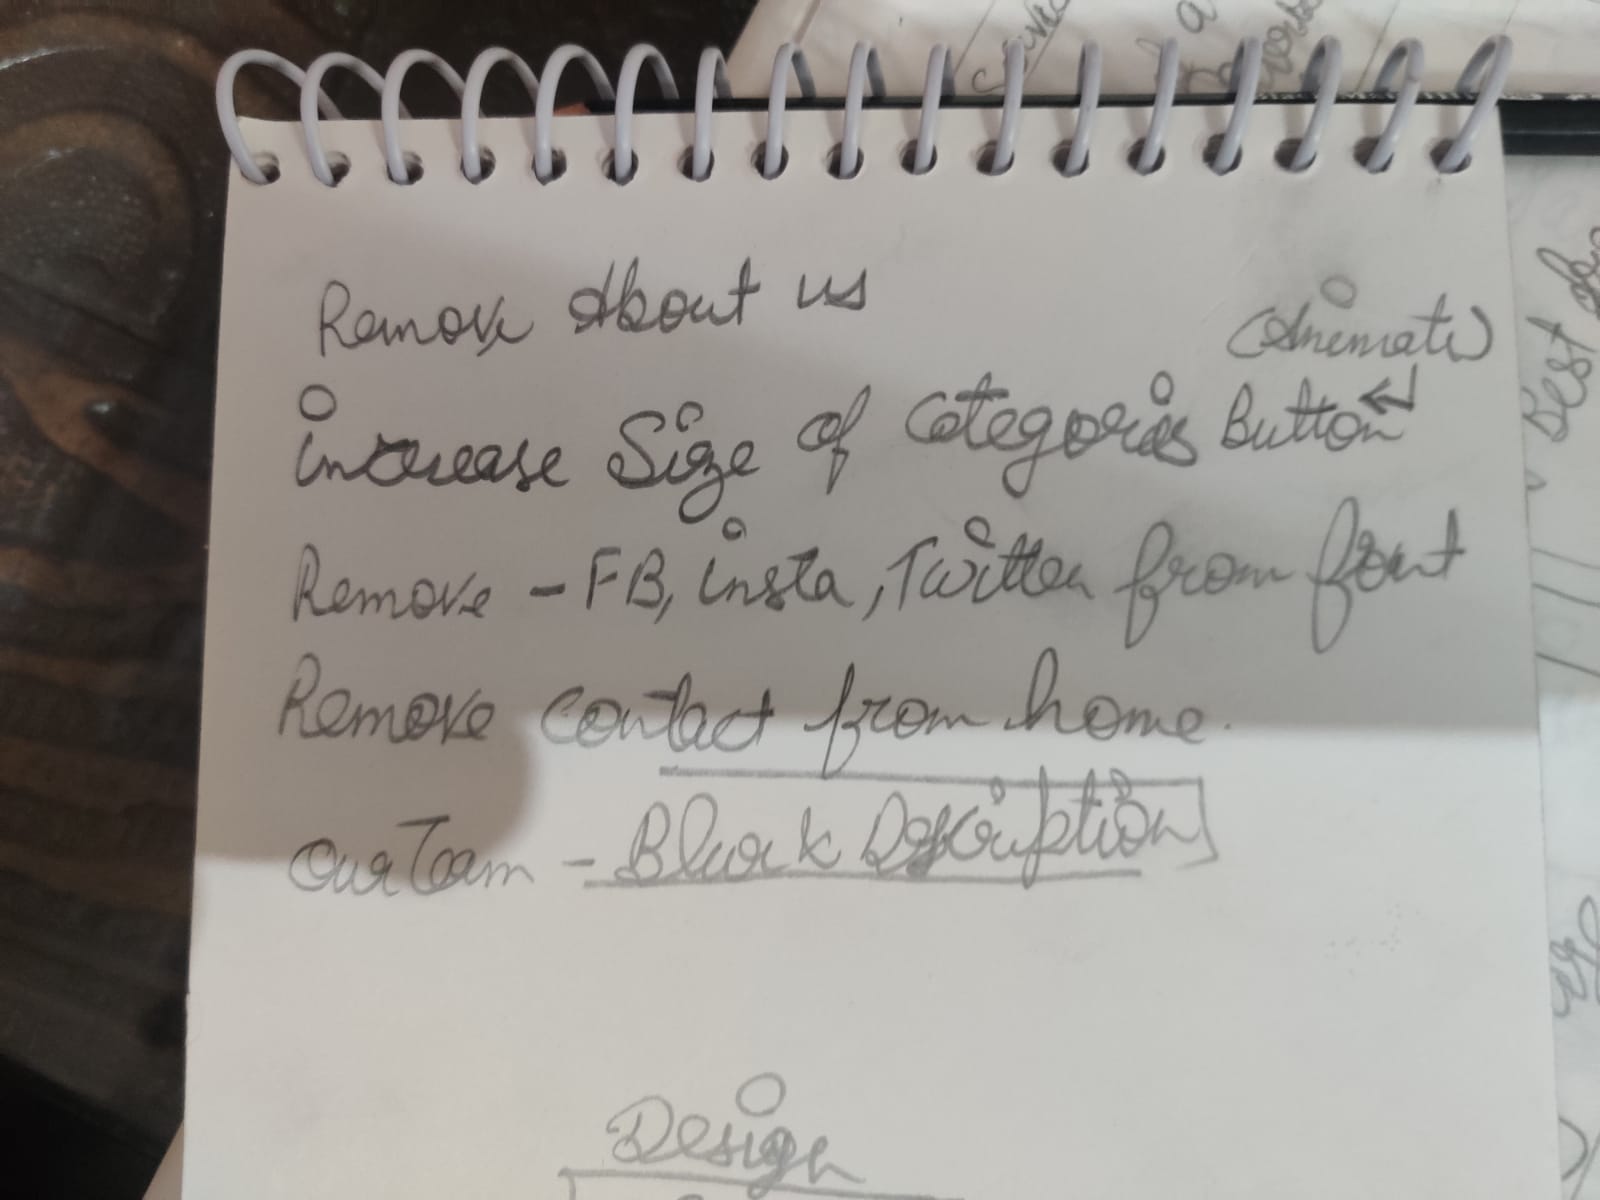 Remove About us
(Animate)
increase Size of Categories Button
Remove - FB, insta, Twitter from font
Remove Contact from home.
Our Team - Block Description
Design
Best